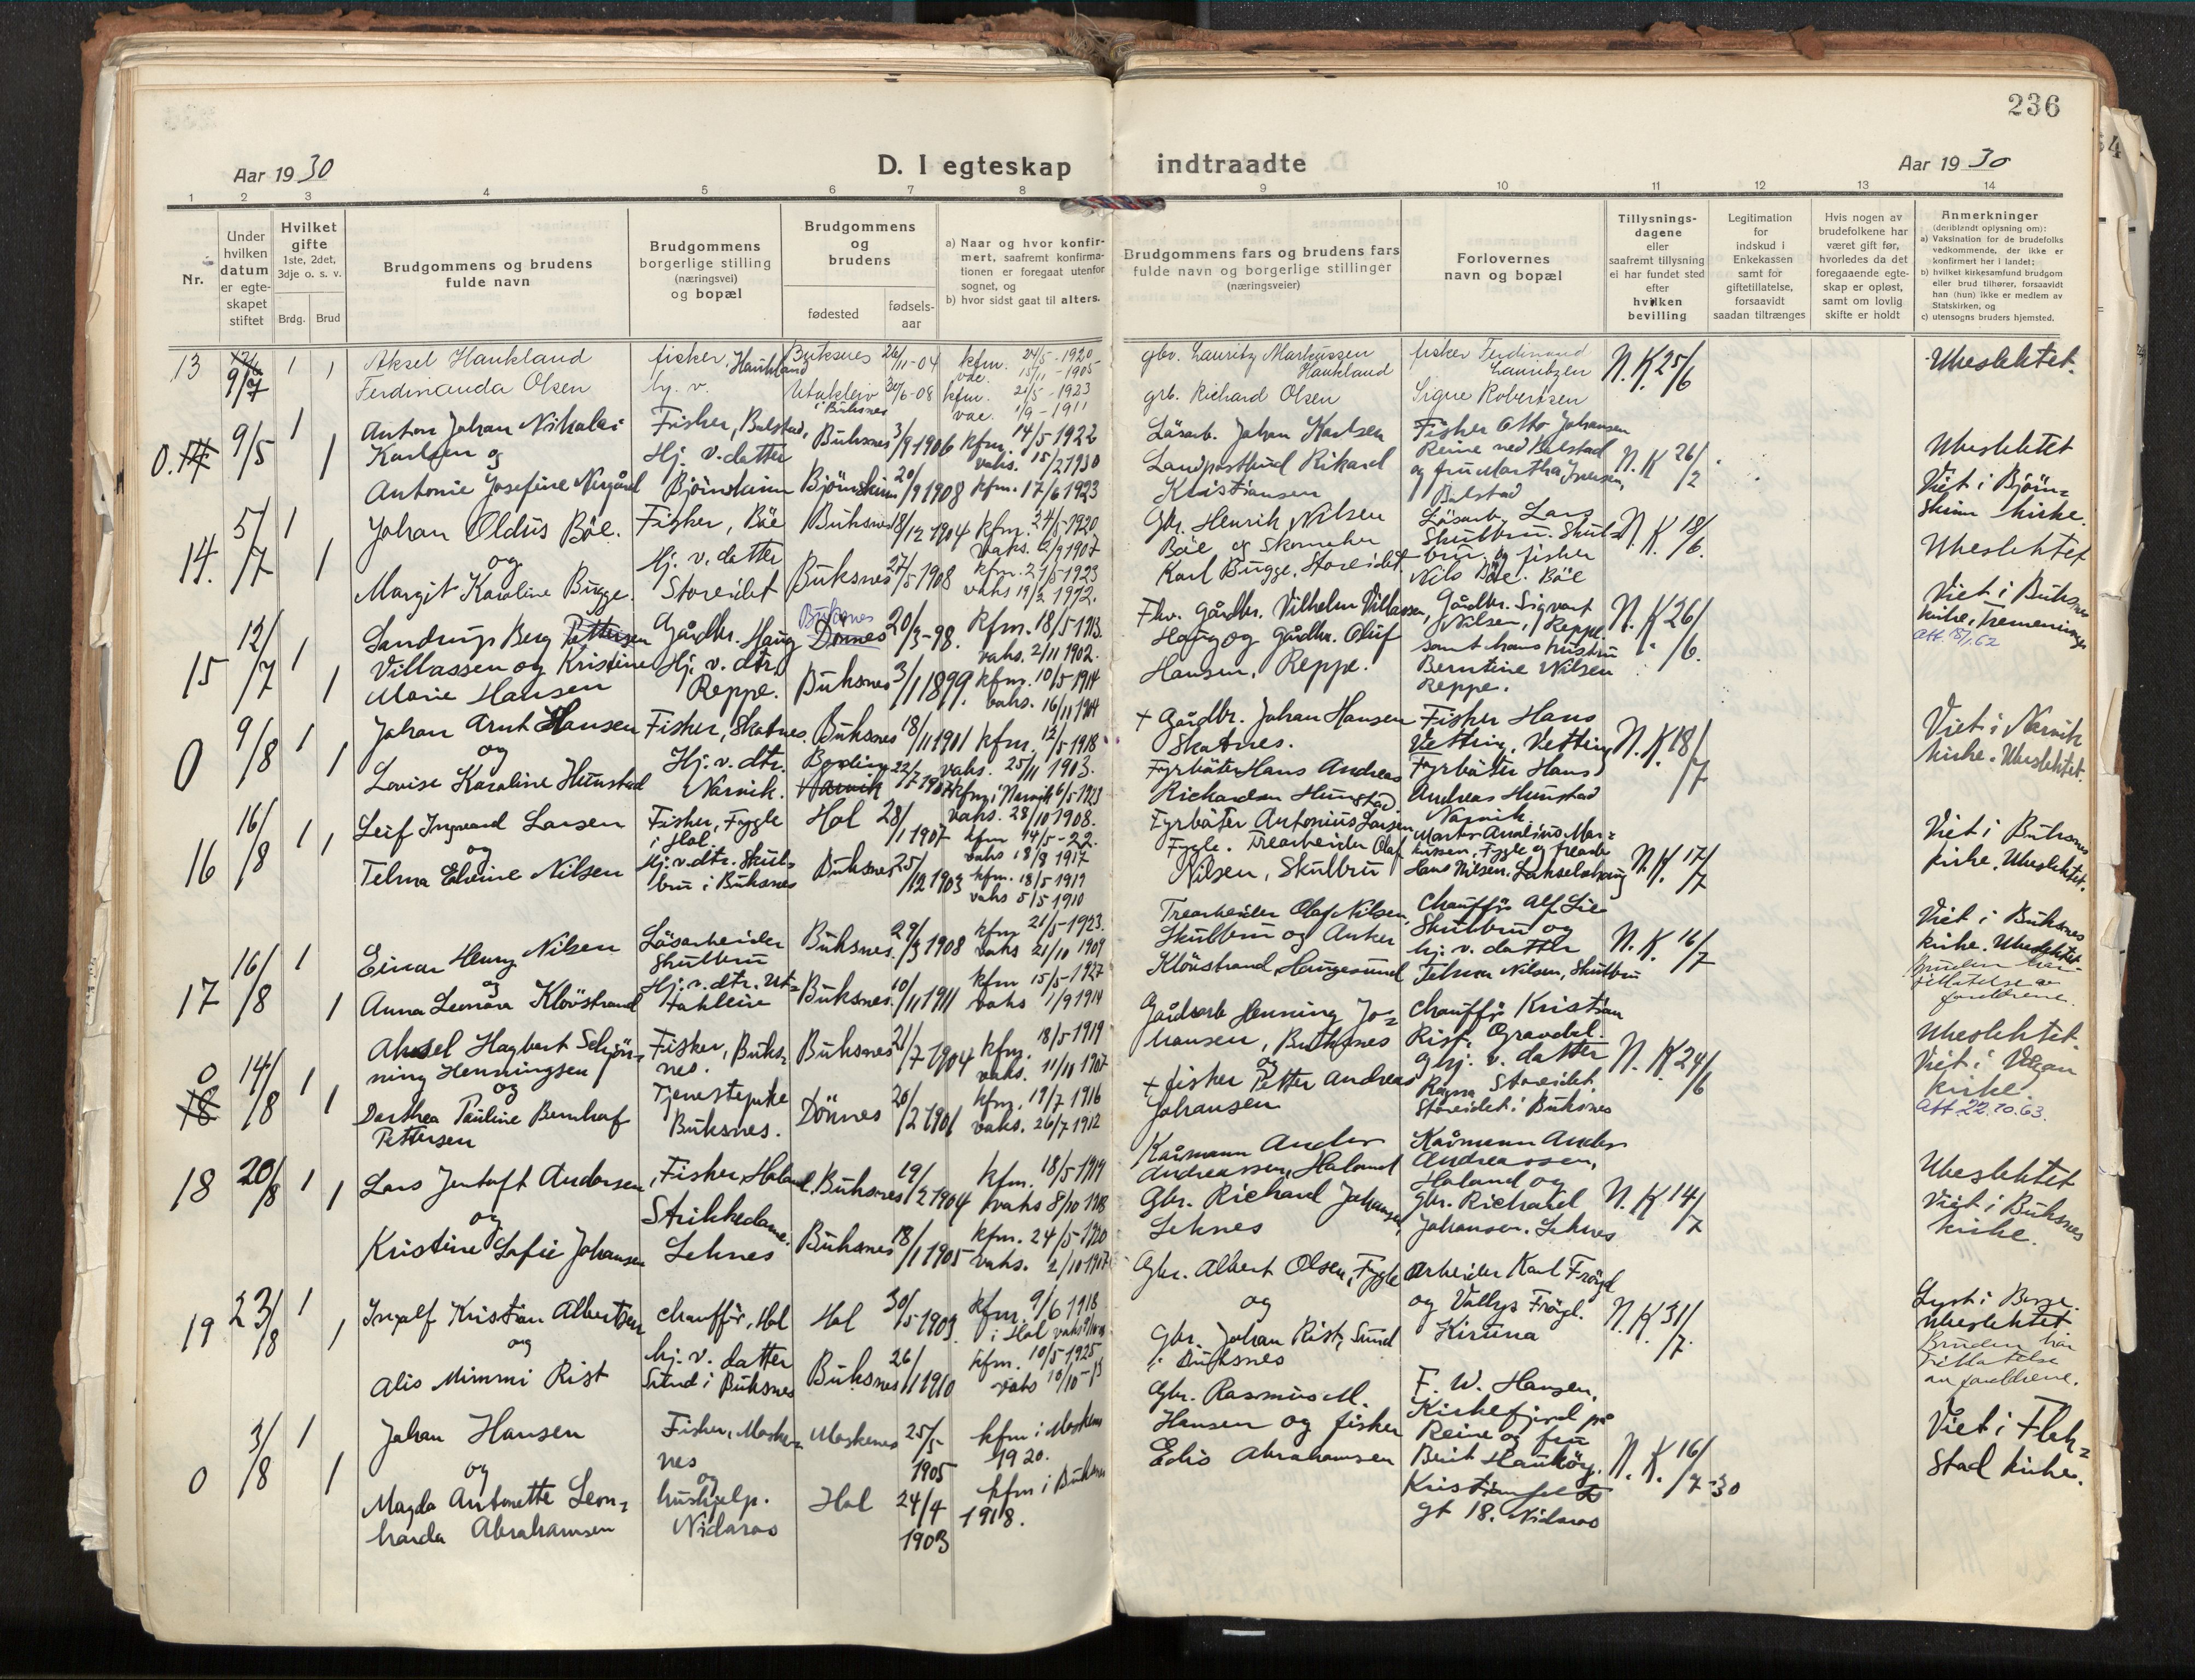 236
Aar 1930
D. I egteskap indtraadte
Aar 1930
1 2 3 4 5 6 7 8 9 10 11 12 13 14
Nr.
Under hvilken datum er egteskapet stiftet
Hvilket gifte 1ste, 2det, 3dje o. s. v.
Brdg. Brud
Brudgommens og brudens fulde navn
Brudgommens borgerlige stilling (næringsvei) og bopæl
Brudgommens og brudens
fødested
fødsels-aar
a) Naar og hvor konfirmert, saafremt konfirmationen er foregaat utenfor sognet, og
b) hvor sidst gaat til alters.
Brudgommens fars og brudens fars fulde navn og borgerlige stillinger (næringsveier)
Forlovernes navn og bopæl
Tillysningsdagene eller saafremt tillysning ei har fundet sted efter hvilken bevilling
Legitimation for indskud i Enkekassen samt for giftetillatelse, forsaavidt saadan tiltrænges
Hvis nogen av brudefolkene har været gift før, hvorledes da det foregaaende egteskap er opløst, samt om lovlig skifte er holdt
Anmerkninger (deriblandt oplysning om):
a) Vaksination for de brudefolks vedkommende, der ikke er konfirmert her i landet;
b) hvilket kirkesamfund brudgom eller brud tilhører, forsaavidt han (hun) ikke er medlem av Statskirken, og
c) utensogns bruders hjemsted.
13 9/7 1 1
Aksel Haukland
Ferdinanda Olsen
fisker, Haukland
hj. v.
Buksnes 26/11-04
Utakleiv i Buksnes 30/6-08
kfm. 24/5-1920
vac. 15/11-1905
kfm. 21/5-1923
vac. 1/9-1911
gbr. Lauritz Markussen Haukland
grb. Richard Olsen
fisker Ferdinand Lauritzen
Signe Robertsen
N.K. 25/6
Ubeslektet.
0. 14 9/5 1 1
Anton Johan Nikolai
Karlsen og
Antonie Josefine Nygård
Fisker, Balstad,
Hj. v. datter
Bjørnskinn
Buksnes 3/9 1906
Bjørnskinn 20/9 1908
kfm. 14/5 1922
vaks. 15/2 1930
kfm. 17/6 1923
Løsarb. Johan Karlsen
Landpostbud Rikard
Kristiansen
Fisker Otto Johansen
Reine ved Balstad
og fru Martha Iversen,
Balstad
N.K 26/2
Ubeslektet
Viet i Bjørnskinn kirke.
14. 5/7 1 1
Johan Oldus Bøe.
og
Margit Karoline Bugge.
Fisker, Bøe
Hj. v. datter
Storeidet
Buksnes 18/12 1904
Buksnes 27/5 1908
kfm. 24/5-1920
vaks. 2/9 1907
kfm. 21/5 1923
vaks 19/2 1912.
Gbr. Henrik Nilsen
Bøe og Skomaker
Karl Bugge. Storeidet
Løsarb. Lars
Skulbru. Skulbru. og fisker
Nils Bøe. Bøe
N.K. 18/6.
Ubeslektet
15 12/7 1 1
Sandrup Berg Pettersen
Villassen og Kristine
Marie Hansen
Gårdbr. Haug
Hj. v. dtr.
Reppe.
Buksnes
Dønnes 20/3-98.
Buksnes 3/1 1899.
kfm. 18/5 1913.
vaks. 2/11 1902.
kfm. 10/5 1914
vaks. 16/11 1904
Fhv. Gårdbr. Vilhelm Villassen,
Haug og gårdbr. Oluf
Hansen, Reppe.
Gårdbr. Sigvart
Nilsen, Reppe
samt hans hustru
Berntine Nilsen
Reppe.
N.K 26/6.
Viet i Buksnes
kirke, Tremenninger
Att. 18/1.62
0 9/8 1 1
Johan Arnt Hansen
og
Lovise Karoline Hunstad
Fisker, Skatnes.
Hj. v. dtr.
Narvik.
Buksnes 18/11 1901
Bodin
Narvik 22/7 1907
kfm. 12/5 1918
vaks. 25/11 1903.
kfm i Narvik 6/5 1923
vaks. 28/10 1908.
+ Gårdbr. Johan Hansen
Skatnes.
Fyrbøter Hans Andreas
Richardsen Hunstad.
Fisher Hans
Vetting, Vetting
Fyrbøter Hans
Andreas Hunstad
Narvik
N.K 18/7
Viet i Narvik
kirke. Ubeslektet.
16 16/8 1 1
Leif Ingvard Larsen
og
Telma Elvine Nilsen
Fisker, Fygle
i Hol.
Hj. v. dtr. Skulbru i Buksnes
Hol 28/1 1907
Buksnes 25/12 1903
kfm 14/5-22.
vaks 18/8 1917
kfm. 18/5 1919
vaks 5/5 1910
Fyrbøter Antonius Larsen
Fygle. Trearbeider Olaf
Nilsen, Skulbru
Martin Analius Markussen, Fygle og
Hans Nilsen.
N.K. 17/7
Viet i Buksnes
kirke. Ubeslektet.
17 16/8 1 1
Einar Henry Nilsen
og
Anna Leonora Kløvstrand
Løsarbeider
Skulbru
Hj. v. dtr. Utakleiv
Buksnes. 29/3 1908
Buksnes. 10/11 1911
kfm 21/5-1923.
vaks 21/10 1909
kfm 15/5-1927
vaks 1/9 1914
Trearbeider Olaf Nilsen,
Skulbru og Anker
Kløvstrand, Haugesund
Chauffør Alf Lie
Skulbru og
hj. v. datter
Telma Nilsen, Skulbru
N.K. 16/7
Viet i Buksnes
kirke. Ubeslektet.
Bruden har
tillatelse av
foreldrene.
0 18 14/8 1 1
Aksel Hagbart Schjønning Henningsen
og
Dorthea Pauline Bernhof
Pettersen
Fisker, Buksnes.
Tjenestepike
Buksnes.
Buksnes 21/7 1904
Dønnes 20/2 1901
kfm. 18/5 1919
vaks. 11/11 1907
kfm. 19/7 1916
vaks. 26/7 1912
Gårdsarb Henning Johansen, Buksnes
og
+ fisker Petter Andreas
Johansen
Chauffør Kristian
Rist, Gravdal.
og hj. v. datter
Ragna Storeidet
Storeidet i Buksnes
N.K. 24/6
Ubeslektet.
Viet i
kirke.
Att. 22.10.63.
18 20/8 1 1
Lars Jentoft Andersen
og
Kristine Sofie Johansen
Fisker, Holand,
Strikkedame.
Leknes
Buksnes 19/12 1904
Buksnes 18/1 1905
kfm. 18/5 1919
vaks 8/10 1908
kfm. 24/5-1920
vaks. 2/10 1907
Kårmann Anders
Andreassen, Holand
Gbr. Richard Johansen,
Leknes
Kårmann Anders
Andreassen,
Holand og
Gbr. Richard
Johansen. Leknes
N.K 14/7
Ubeslektet
Viet i Buksnes
kirke.
19 23/8 1 1
Ingolf Kristian Albertsen
og
Alis Mimmi Rist
chauffør, Hol
hj. v. datter
Sund i Buksnes
Hol 30/5 1903
Buksnes 26/11 1910
kfm. 9/6 1918
i Hol vaks
kfm. 10/5 1925
vaks 10/10-13
Gbr. Albert Olsen, Fygle
og
Gbr. Johan Rist, Sund
i Buksnes
Arbeider Karl Frøyd
og Vallys Frøyd.
Kiruna
N.K 31/7.
Lyst i Borge.
Ubeslektet
Bruden har
tillatelse
av foreldrene.
0 3/8 1 1
Johan Hansen
og
Magda Antonette Leonharda Abrahamsen
Fisker, Moskenes
og
hushjelp.
Nidaros
Moskenes 25/5 1905
Hol 24/4 1903
kfm i Moskenes
1920.
kfm i Buksnes
1918.
Gbr. Rasmus M.
Hansen og fisker
Edis Abrahamsen
F. W. Hansen,
Kirkefjord på
Reine og fru
Berit Haukøy,
gt 18. Nidaros
N.K. 16/7-30
Viet i Flakstad kirke.